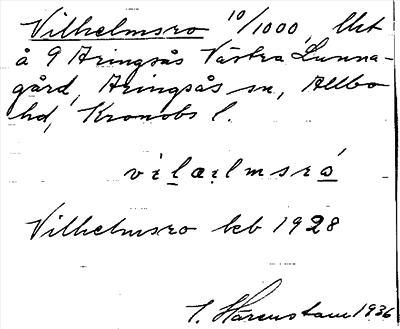 Vilhelmsro 10/1000, lht
å 9 Aringsås Västra Lunna-
gård, Aringsås sn, Allbo
hd, Kronobs l.
Vilhelmsro kb 1928
Härenstam 1936